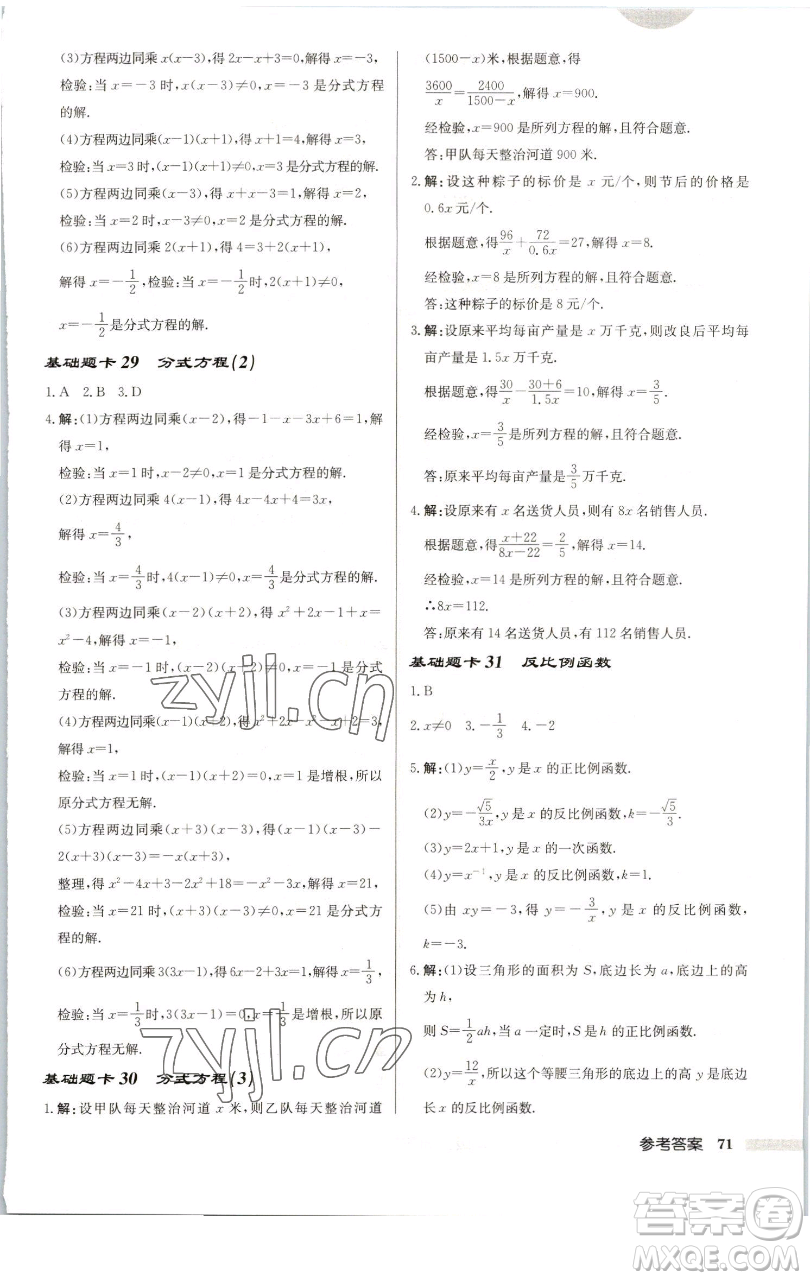 (3)方程两边同乘x(x-3),得2x-x+3=0,解得x=-3,
检验:当x=-3时,x(x-3)≠0,x=-3是分式方程
的解.
(4)方程两边同乘(x-1)(x+1),得x+1=4,解得x=3,
检验:当x=3时,(x-1)(x+1)≠0,x=3是分式方程的解.
(5)方程两边同乘x-3,得x+x-3=1,解得x=2,
检验:当x=2时,x-3≠0,x=2是分式方程的解.
(6)方程两边同乘2(x+1),得4=3+2(x+1),
解得x=-1/2,检验:当x=-1/2时,2(x+1)≠0,
x=-1/2是分式方程的解.
基础题卡29 分式方程(2)
1.A 2.B 3.D
4.解:(1)方程两边同乘(x-2),得-1-x-3x+6=1,解
得x=1,
检验:当x=1时,x-2≠0,x=1是分式方程的解.
(2)方程两边同乘4(x-1),得4x-4x+4=3x,
解得x=4/3,
检验:当x=4/3时,4(x-1)≠0,x=4/3是分式方程的解.
(3)方程两边同乘(x-2)(x+2),得x²+2x-1+x=
x²-4,解得x=-1,
检验:当x=-1时,(x-2)(x+2)≠0,x=-1是分式
方程的解.
(4)方程两边同乘(x-1)(x+2),得x²+2x-x²-x+2=3,
解得x=1,
检验:当x=1时,(x-1)(x+2)=0,x=1是增根,所以
原分式方程无解.
(5)方程两边同乘(x+3)(x-3),得(x-1)(x-3)-
2(x+3)(x-3)=-x(x+3),
整理,得x²-4x+3-2x²+18=-x²-3x,解得x=21,
检验:当x=21时,(x+3)(x-3)≠0,x=21是分式方
程的解.
(6)方程两边同乘3(3x-1),得6x-2+3x=1,解得x=1/3,
检验:当x=1/3时,3(3x-1)=0,x=1/3是增根,所以原
分式方程无解.
基础题卡30 分式方程(3)
1.解:设甲队每天整治河道x米,则乙队每天整治河道
(1500-x)米,根据题意,得
3600/x=2400/(1500-x),解得x=900.
经检验,x=900是所列方程的解,且符合题意.
答:甲队每天整治河道900米.
2.解:设这种粽子的标价是x元/个,则节后的价格是
0.6x元/个.
根据题意,得96/x+72/0.6x=27,解得x=8.
经检验,x=8是所列方程的解,且符合题意.
答:这种粽子的标价是8元/个.
3.解:设原来平均每亩产量是x万千克,则改良后平均每
亩产量是1.5x万千克.
根据题意,得30/x-(30+6)/1.5x=10,解得x=3/5.
经检验,x=3/5是所列方程的解,且符合题意.
答:原来平均每亩产量是3/5万千克.
4.解:设原来有x名送货人员,则有8x名销售人员.
根据题意,得(x+22)/(8x-22)=2/5,解得x=14.
经检验,x=14是所列方程的解,且符合题意.
∴8x=112.
答:原来有14名送货人员,有112名销售人员.
基础题卡31 反比例函数
1.B
2.x≠0 3.-1/3 4.-2
5.解:(1)y=x/2,y是x的正比例函数.
(2)y=-√5/3x,y是x的反比例函数,k=-√5/3.
(3)y=2x+1,y是x的一次函数.
(4)y=x⁻¹,y是x的反比例函数,k=1.
(5)由xy=-3,得y=-3/x,y是x的反比例函数,
k=-3.
6.解:(1)设三角形的面积为S,底边长为a,底边上的高
为h,
则S=1/2ah,当a一定时,S是h的正比例函数.
(2)y=12/x,所以这个等腰三角形的底边上的高y是底边
长x的反比例函数.
参考答案 71
zyjl.cn
zyjl.cn
答案卷
MXQE.COM